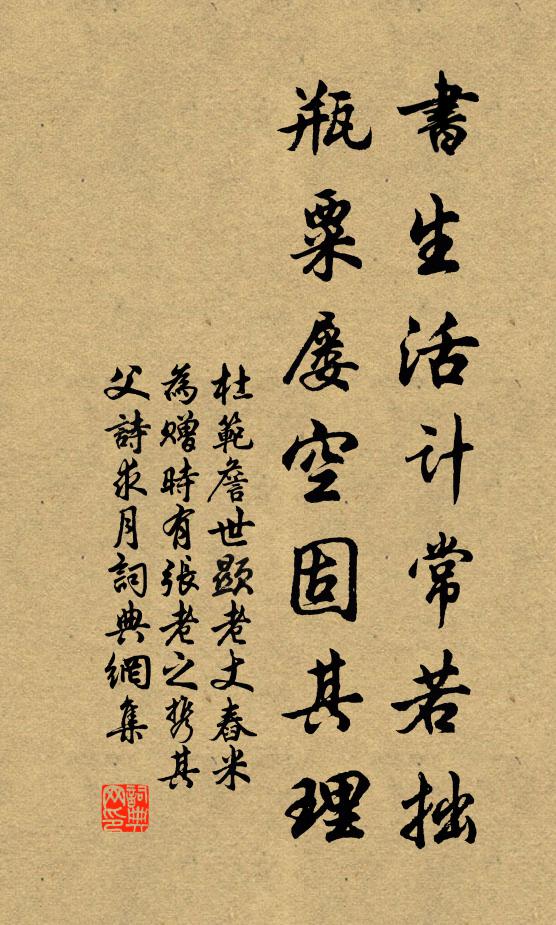 書生活計常若拙
瓶粟屢空固其理
杜範詹世顯老丈舂米
為贈時有張老之攜其
父詩求月詞典網集
詞典
网印